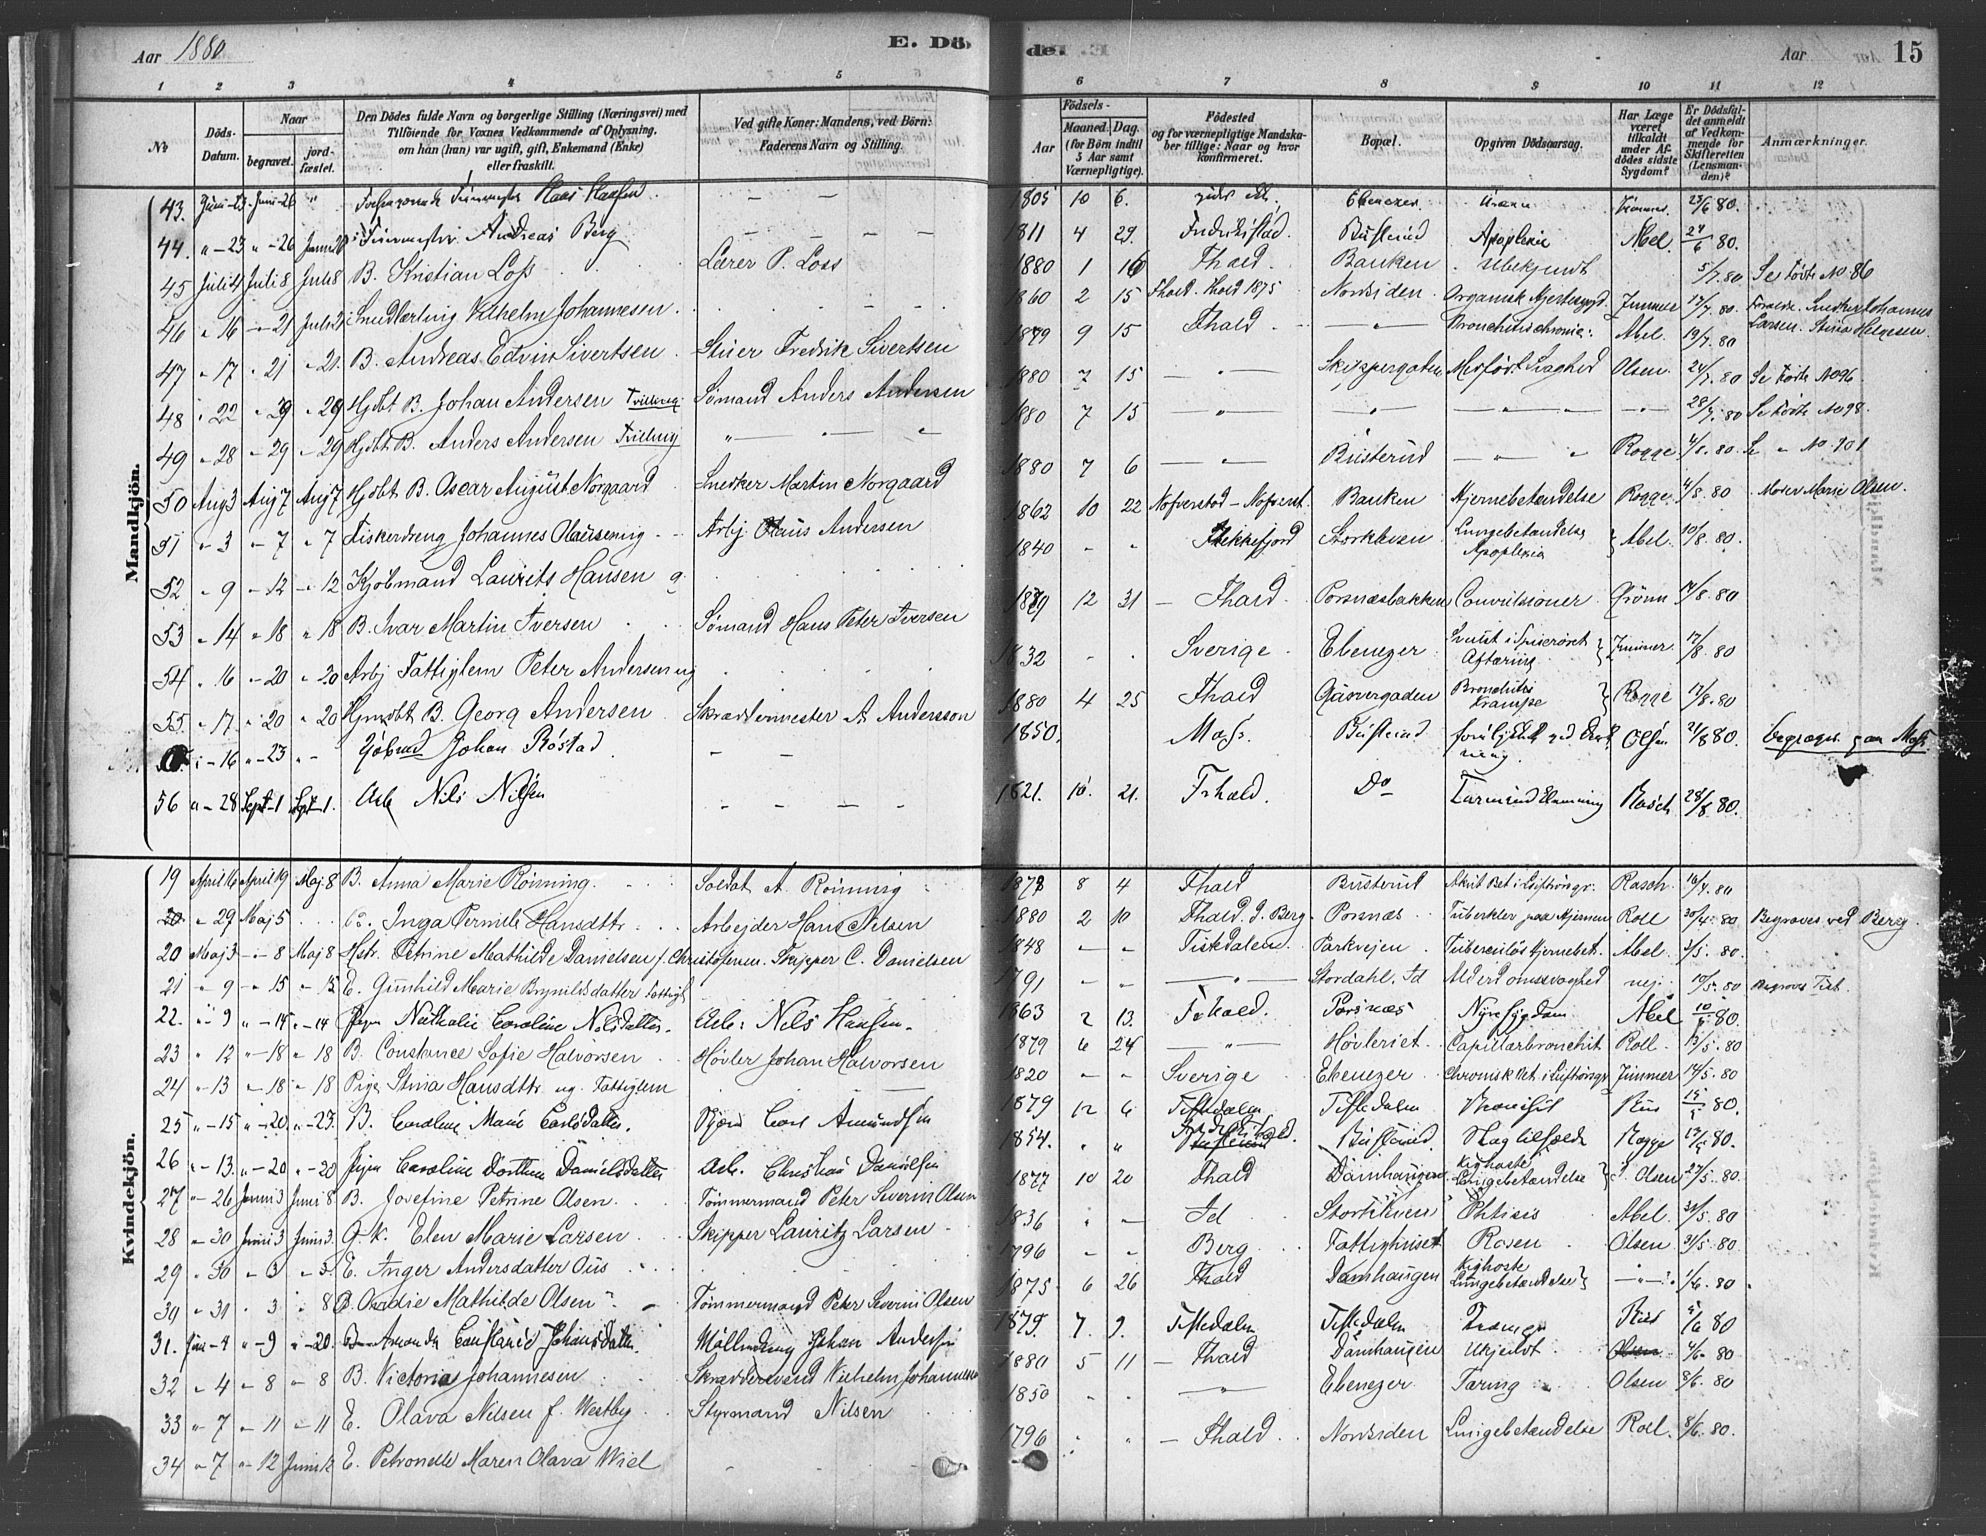 Aar 1880 E. Döde. Aar 15
1 2 3 4 5 6 7 8 9 10 11 12
No
Döds-Datum.
Naar
begravet.
jordfæstet.
Den Dödes fulde Navn og borgerlige Stilling (Næringsvei) med
Tilföiende for Voxnes Vedkommende af Oplysning,
om han (hun) var ugift, gift, Enkemand (Enke)
eller fraskilt.
Ved gifte Koner: Mandens, ved Börn:
Faderens Navn og Stilling.
Födsels-
Aar
Maaned. Dag.
(for Börn indtil
5 Aar samt
Værnepligtige).
Födested
og for værnepligtige Mandska-
ber tillige: Naar og hvor
konfirmeret.
Bopæl.
Opgiven Dödsaarsag.
Har Læge
været
tilkaldt
under Af-
dödes sidste
Sygdom?
Er Dödsfal-
det anmeldt
af Vedkom-
mende for
Skifteretten
(Lensman-
den)?
Anmærkninger.
Mandkjön.
43. Juni 23 Juni 26 " Hans Hansen — — 1805 10 6. Ebenezer 23/6 80.
44. " 23 " 26 Andreas Berg — — — — 1811 4 29. Fredrikstad. Busterud Apoplexie Abel 24/6 80.
45 Juli 4 Juli 8 Juli 8 B. Kristian Loss Lærer P. Loss 1880 1 16 Fhald. Banken Ubekjendt 5/7 80 Se Födte No 86
46 " 16 " 21 Juli 21 Vilhelm Johannesen 1860 2 15 Fhald. Fhald 1875 Nordsiden Organisk Hjertesygd. Zimmer 17/7 80 Snedker Johannes Larsen. Stina Helgesen
47 " 17 " 21 " 21. B. Andreas Edvin Sivertsen Stuer Fredrik Sivertsen 1879 9 15 Fhald — " — Bronchitis chronic: Abel 19/7 80
48 " 22 " 29 " 29 Hjdbt B. Johan Andersen Tvilling Sømand Anders Andersen 1880 7 15 — " — Skippergaten Medfødt Svaghed Olsen 24/7 80 Se Födte No 96.
49 " 28 " 29 " 29 Hjdbt B. Anders Andersen Tvilling " — " — " 1880 7 15 " " — " — — " — 28/7 80 Se Födte No 98.
50 Aug 3 Aug 7 Aug 7 Hjdbt B. Oscar August Norgaard Snedker Martin Norgaard 1880 7 6 — " — Busterud — " — " Rogge 4/8. 80. Se " No. 101
51 " 3 " 7 " 7 Fiskerdreng Johannes Olausen ug Arbj Olaus Andersen 1862 10 22 Banken Hjernebetændelse Rogge 4/8. 80 Moder Marie Olsen.
52 " 9 " 12 " 12 Kjøbmand Laurits Hansen g. 1840 - " Flekkefjord Storkleven Lungebetændelse Apoplexia Abel 10/8. 80.
53 " 14 " 18 " 18 B. Ivar Martin Iversen Sømand Hans Peter Iversen 1879 12 31 — Fhald. Porsnæsbakken Convulsioner Grönn 14/8. 80
54 " 16 " 20 " 20 Arbj Fattiglem Peter Andersen ug 1832 - . Sverige Ebenezer Svulst i Spiserøret Aftæring Zimmer 17/8. 80
55. " 17 " 20 " 20 Hjmdbt B. Georg Andersen Skrædermester A Andersson 1880 4 25 Fhald Garvergaden Bronchitis Krampe Rogge 17/8. 80
" 16 " 23 " Johan Röstad — — 1850. Moss. Busterud Olsen 21/8 80. begraves paa Moss
56 " 28 Sept 1 Sept 1. Arb Nils Nilsen — — — — 1821. 10 21. Frhald. Do Rasch 28/8. 80.
Kvindekjön.
19 April 16 April 19 Maj 8 B. Anna Marie Rönning. Soldat A. Rönning 1878 8 4 Fhald Busterud Rasch 16/4 80
20 " 29 Maj 5 Inga Pernille Hansdttr Arbejder Hans Nilsen 1880 2 10 Fhald. I. Berg Porsnæs Tuberkler paa Hjernen Roll 30/4. 80. Begraves ved Berg.
20 Maj 3 " 8 Maj 8 Hstr. Petrine Mathilde Danielsen f. Christofersen. Skipper C. Danielsen 1848 - " Tistedalen Parkvejen Tuberculøs Hjernebet. Abel 3/5. 80.
21 " 9 " 15 " 15 E. Gunhild Marie Brynildsdatter Fattigl 1791 - " — " — Stordahl. Id Alderdomssvaghed nej. 10/5. 80 Begraves Tist.
22. " 9 " 14 " 14 Pigen Nathalie Caroline Nilsdatter. Arb: Nils Hansen 1863 2 13. Frhald. Porsnæs Nyresygdom Abel 10/5 80.
23 " 12 " 18 " 18 B. Constance Sofie Halvorsen Høvler Johan Halvorsen 1879 6 24 — " — Høvleriet. Capillærbronchit Roll 13/5. 80
24 " 13 " 18 " 18 Pige Stina Hansdttr ug. Fattiglem — 1820 - " Sverige Ebenezer Chronisk Zimmer 14/5. 80
25 " 15 " 20. " 23. B. Caroline Marie Carlsdatter. Carl Amundsen 1879 12 6 Tistedalen Tistedalen Bronchit Riis 15/5 80.
26 " 13. " 20 " 20 Pigen Caroline Dorthea Danielsdatter Arb. Christian Danielsen 1854. " " Busterud Slagtilfælde Rogge 13/5. 80.
27 " 26 Juni 3 Juni 8 B. Josefine Petrine Olsen Tömmermand Peter Severin Olsen 1877 10 20 Fhald Damhaugen Kighoste Lungebetændelse Olsen 27/5. 80
28 " 30 Juni 3 Juni 3. G. K. Elen Marie Larsen Skipper Lauritz Larsen 1836 " — Id Phtisis Abel. 31/5. 80
29 " 30 " 3 " 3. E. Inger Andersdatter Ous 1796 - " Berg Fattighuset Rosen Olsen 31/5. 80
30 " 31 " 3 " 8 B. Mathilde Olsen Tömmermand Peter Severin Olsen 1875 6 26 Fhald Damhaugen Kighoste Lungebetændelse — " — 1/6. 80
31. Juni 4 " 9 " 20. Amanda Constance Johansdatter. Mölledreng Johan Andersen 1879. 7. 9. Tistedalen Tistedalen Riis 5/6 80
32 " 4 " 8 " 8 B. Victoria Johannesen Skræddersvend Vilhelm Johannesen 1880 5 11 — Fhald Damhaugen Ukjendt. Olsen 4/6. 80
33 " 7 " 11 " 11 E. Olava Nilsen f. Westby Styrmand Nilsen 1850 — " — Ebenezer Tæring Olsen 8/6. 80
34 " 7 " 12 Juni 12 E. Petronelle Maren Olava Wiel 1796 " " — Fhald. Nordsiden Lungebetændelse Roll. 8/6. 80.